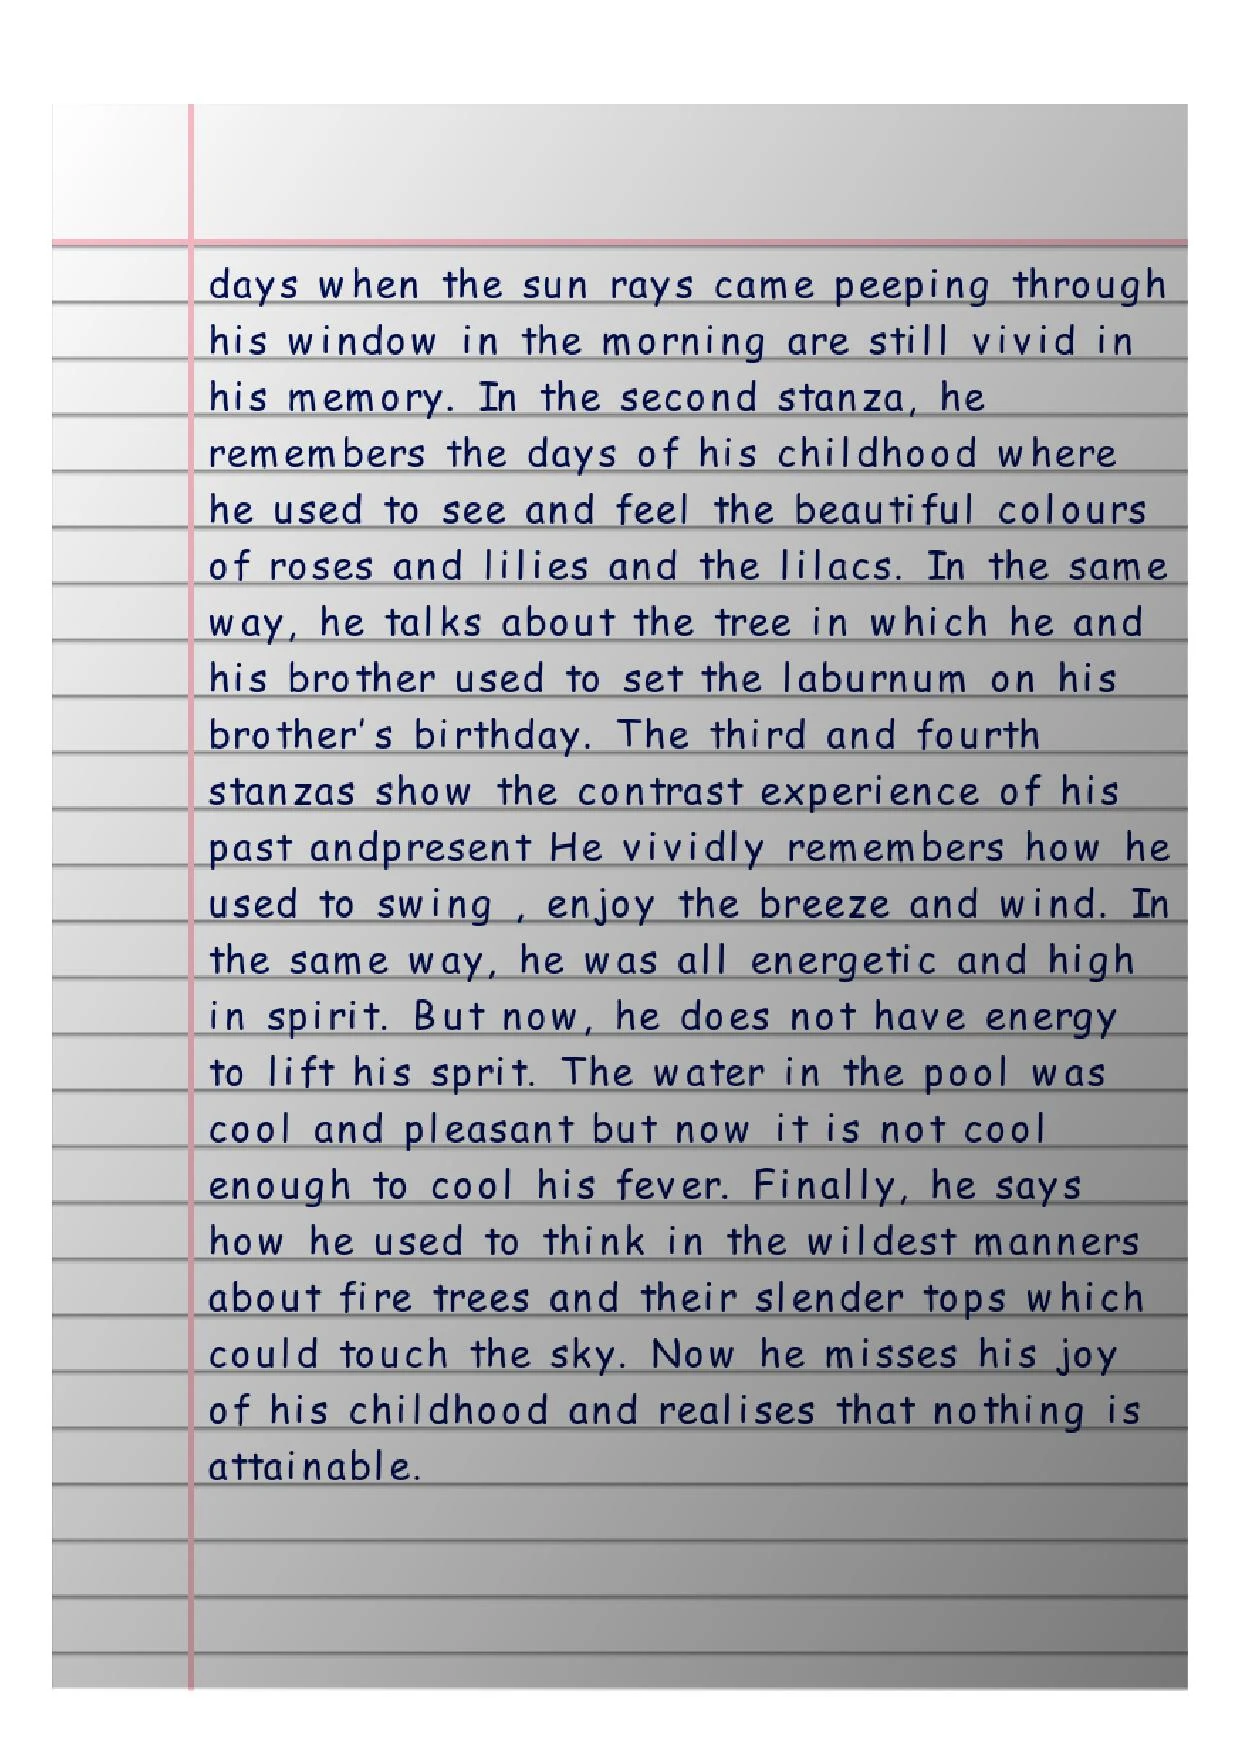 days when the sun rays came peeping through
his window in the morning are still vivid in
his memory. In the second stanza, he
remembers the days of his childhood where
he used to see and feel the beautiful colours
of roses and lilies and the lilacs. In the same
way, he talks about the tree in which he and
his brother used to set the laburnum on his
brother's birthday. The third and fourth
stanzas show the contrast experience of his
past andpresent He vividly remembers how he
used to swing , enjoy the breeze and wind. In
the same way, he was all energetic and high
in spirit. But now, he does not have energy
to lift his sprit. The water in the pool was
cool and pleasant but now it is not cool
enough to cool his fever. Finally, he says
how he used to think in the wildest manners
about fire trees and their slender tops which
could touch the sky. Now he misses his joy
of his childhood and realises that nothing is
attainable.